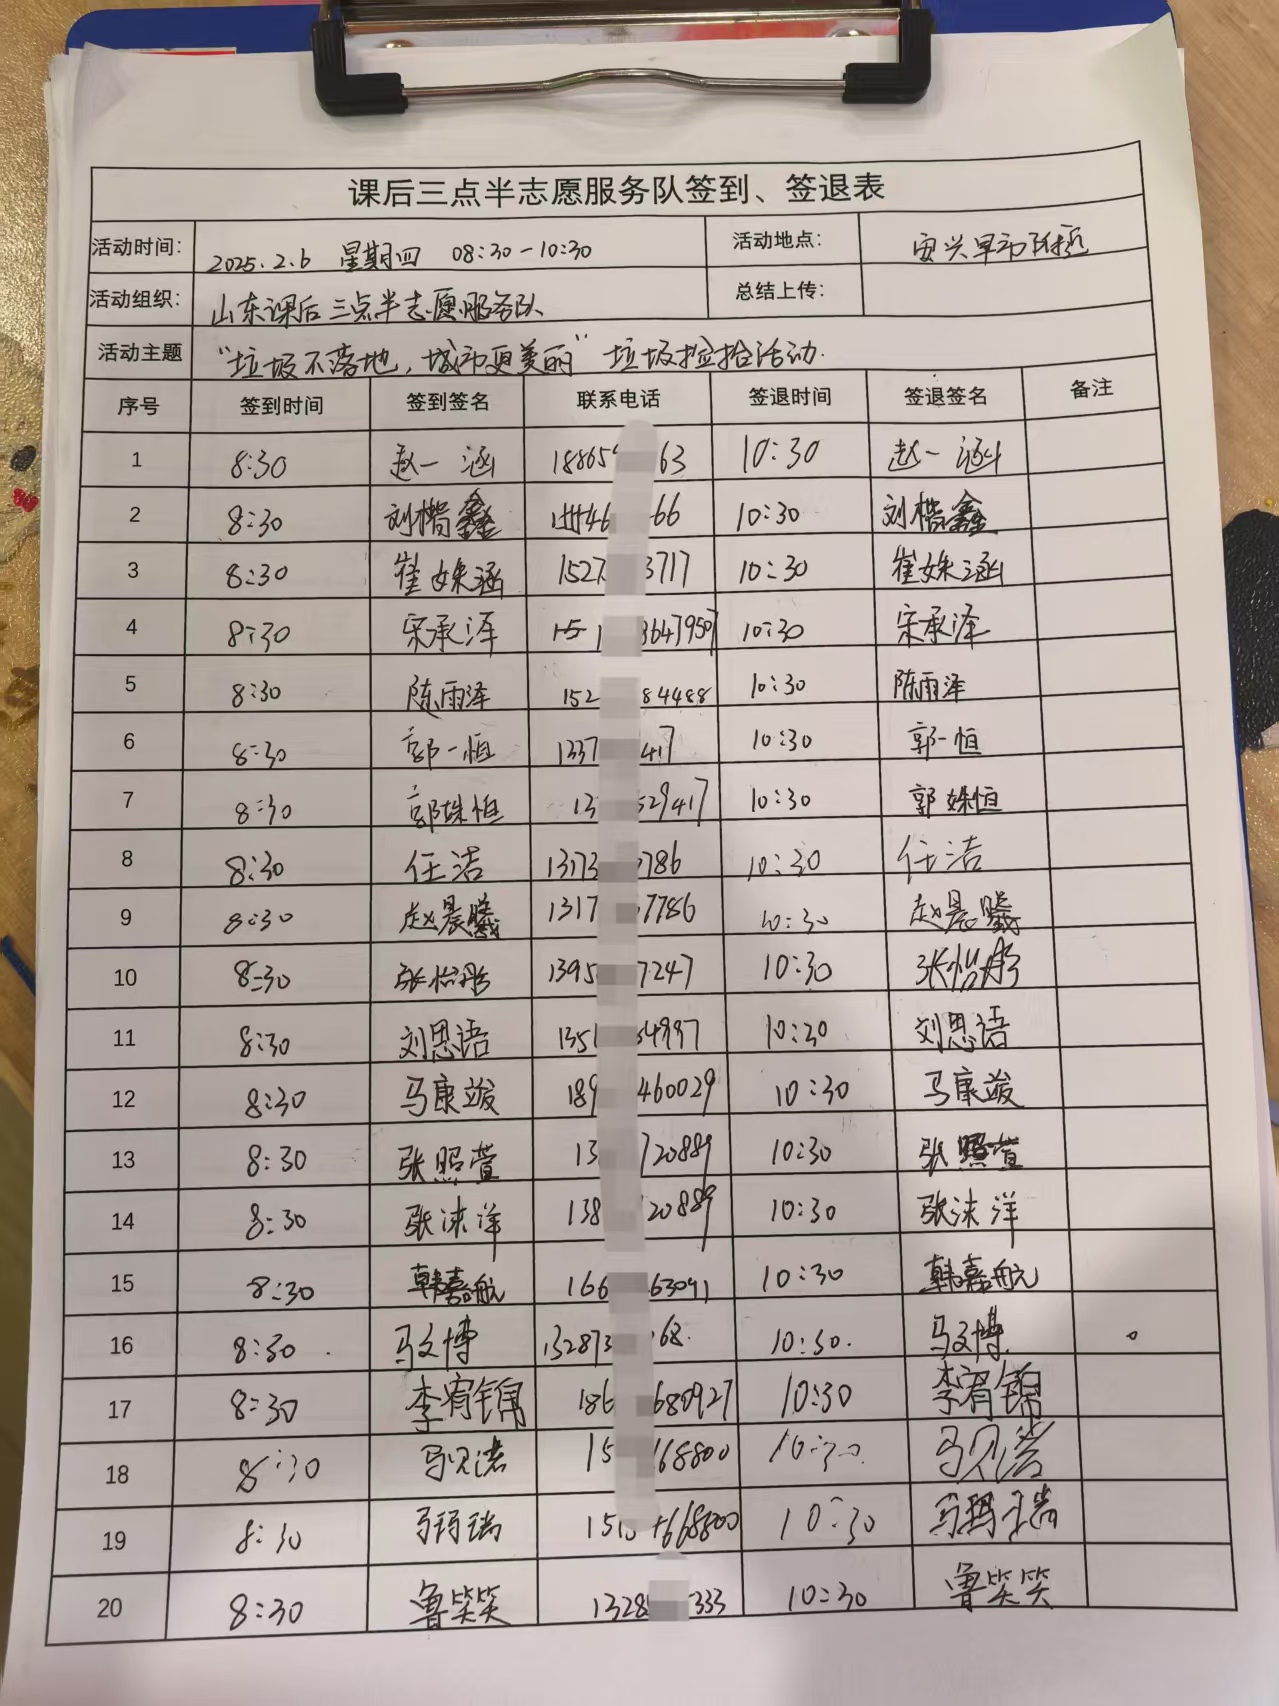 课后三点半志愿服务队签到、签退表
活动时间: 2025.2.6 星期四 08:30-10:30 活动地点: 安兴早市附近
活动组织: 山东课后三点半志愿服务队 总结上传:
活动主题 "垃圾不落地,城市更美丽"垃圾捡拾活动.
序号 签到时间 签到签名 联系电话 签退时间 签退签名 备注
1 8:30 赵一涵 18865 63 10:30 赵一涵
2 8:30 刘楷鑫 66 10:30 刘楷鑫
3 8:30 崔姝涵 1527 3717 10:30 崔姝涵
4 8:30 宋承泽 151 3647950 10:30 宋承泽
5 8:30 陈雨泽 152 84488 10:30 陈雨泽
6 8:30 郭一恒 1337 417 10:30 郭一恒
7 8:30 郭姝恒 13 529417 10:30 郭姝恒
8 8:30 任洁 13173 786 10:30 任洁
9 8:30 赵晨曦 1317 7786 10:30 赵晨曦
10 8:30 张怡彤 1395 7247 10:30 张怡彤
11 8:30 刘思语 1351 54997 10:20 刘思语
12 8:30 马康竣 189 460029 10:30 马康竣
13 8:30 张照萱 13 720889 10:30 张照萱
14 8:30 张沫洋 138 20889 10:30 张沫洋
15 8:30 韩嘉航 166 63091 10:30 韩嘉航
16 8:30 马文博 132873 68. 10:30. 马文博
17 8:30 李宥锦 186 680927 10:30 李宥锦
18 8:30 马贝诺 15 168800 10:30
19 8:30 马玛瑞 151 668800 10:30 马玛瑞
20 8:30 鲁笑笑 1328 333 10:30 鲁笑笑